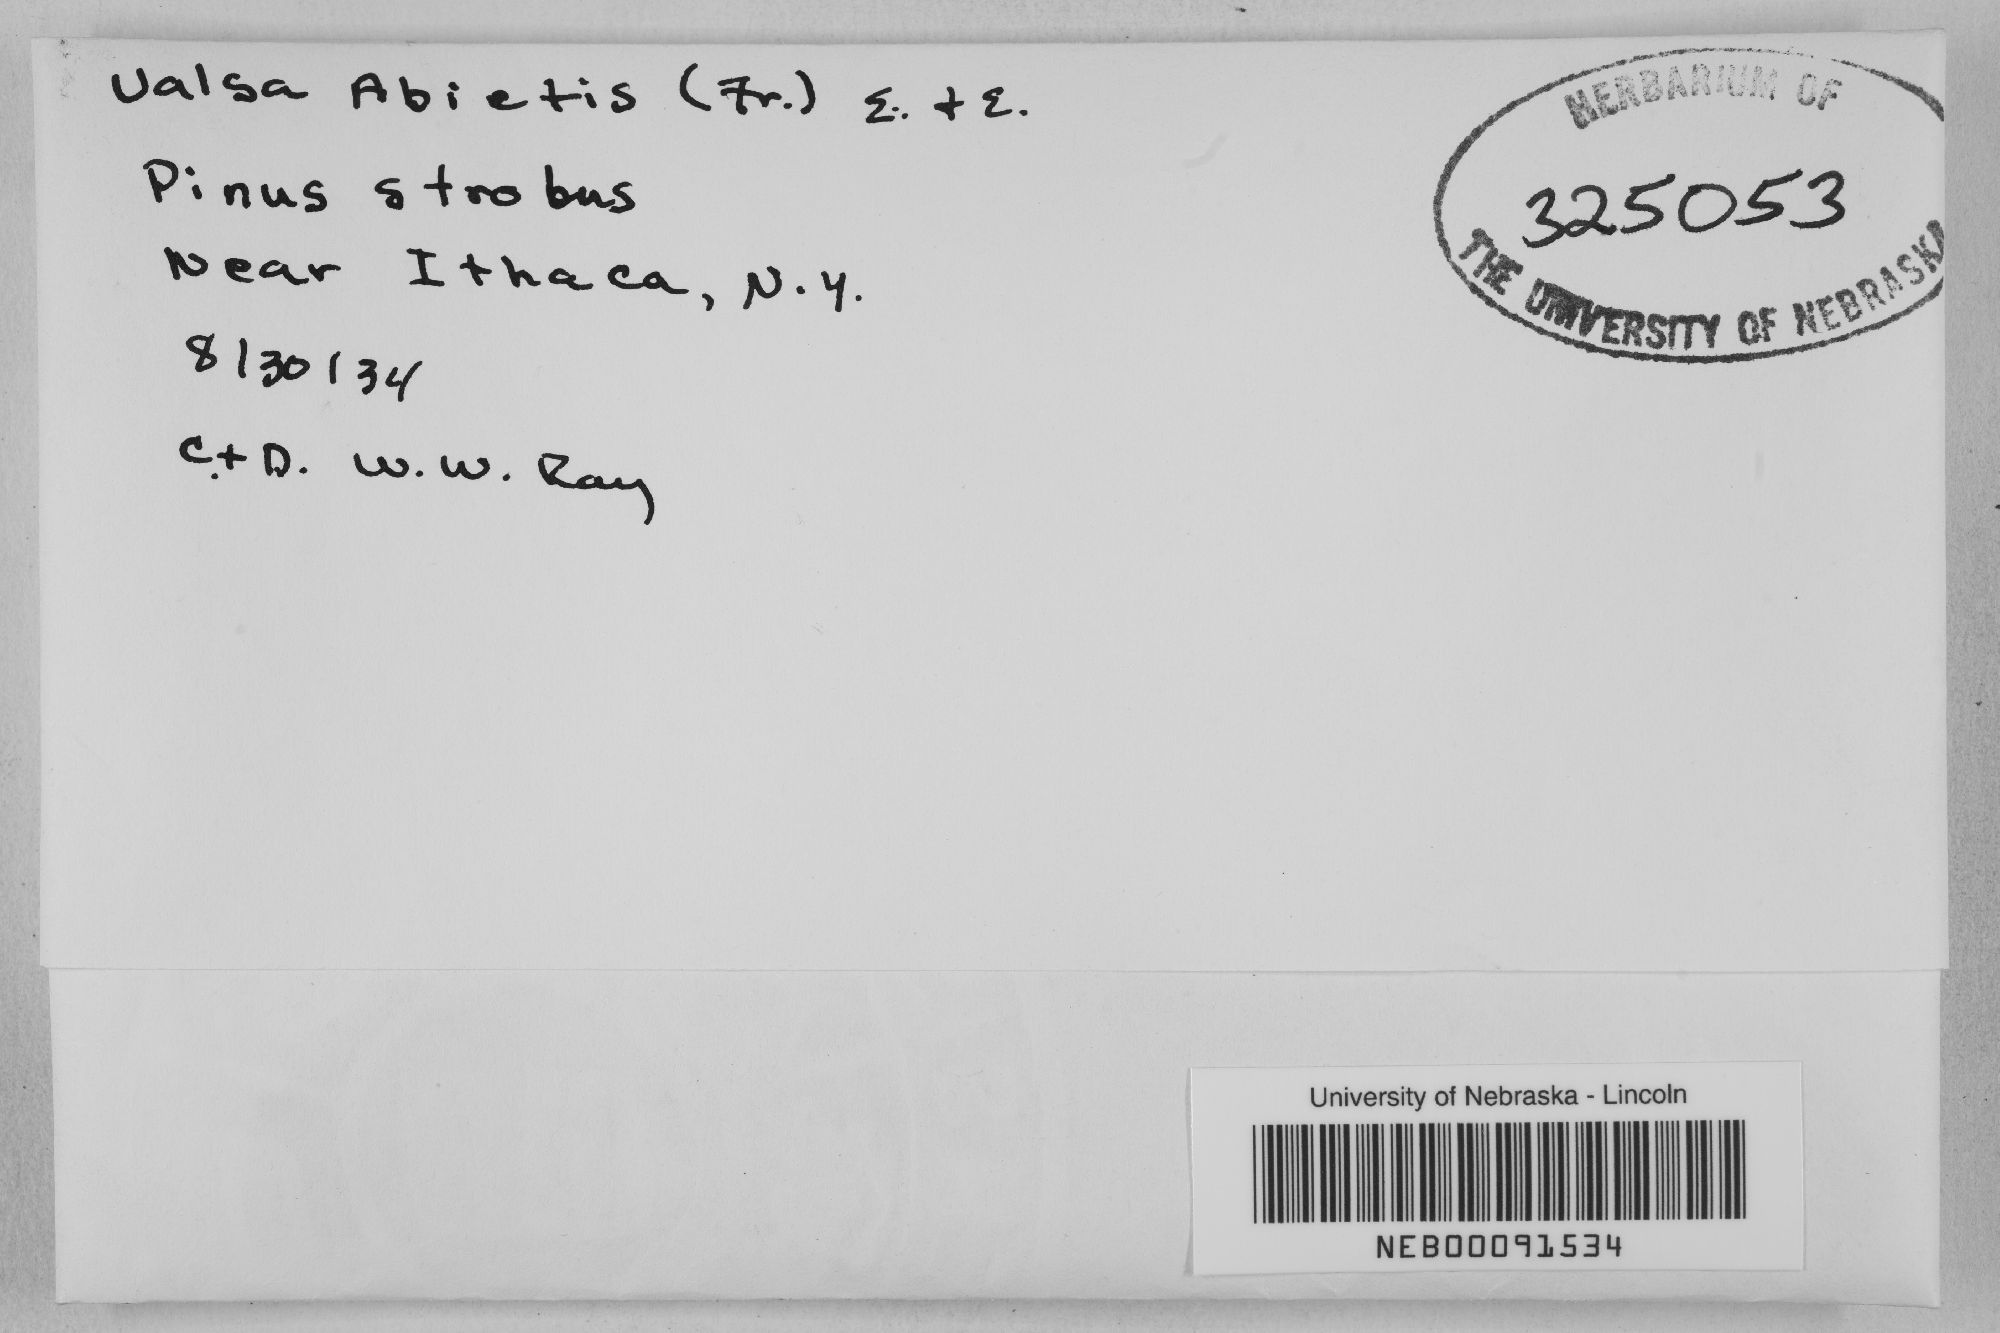 Valsa Abietis (Fr.) E. + E.
Pinus strobus
Near Ithaca, N.Y.
8/30/34
C. + D. W. W. Ray
HERBARIUM OF
325053
THE UNIVERSITY OF NEBRASKA
University of Nebraska - Lincoln
NEB00091534